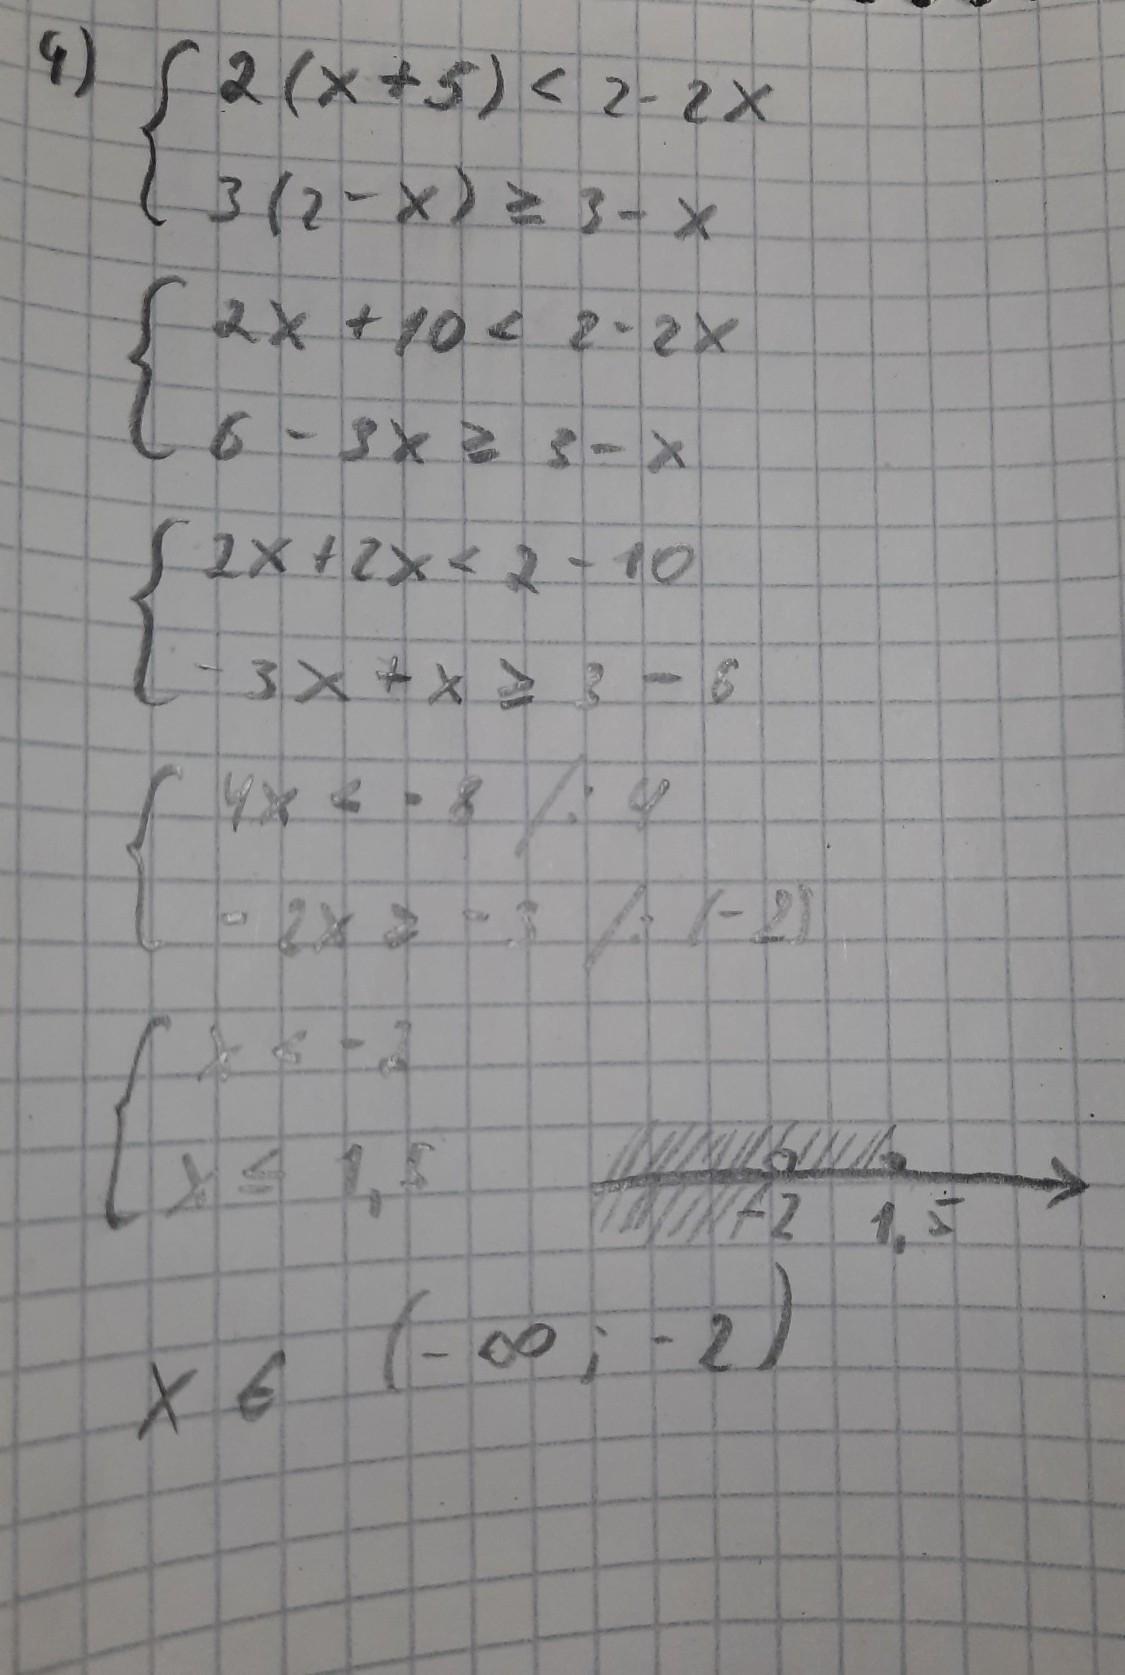 4) { 2(x+5) < 2-2x
3(2-x) ≥ 3-x
{ 2x+10 < 2-2x
6-3x ≥ 3-x
{ 2x+2x < 2-10
-3x+x ≥ 3-6
{ 4x < -8 /: 4
-2x ≥ -3 /: (-2)
{ x < -2
x ≤ 1,5
-2 1,5
x ∈ (-∞; -2)